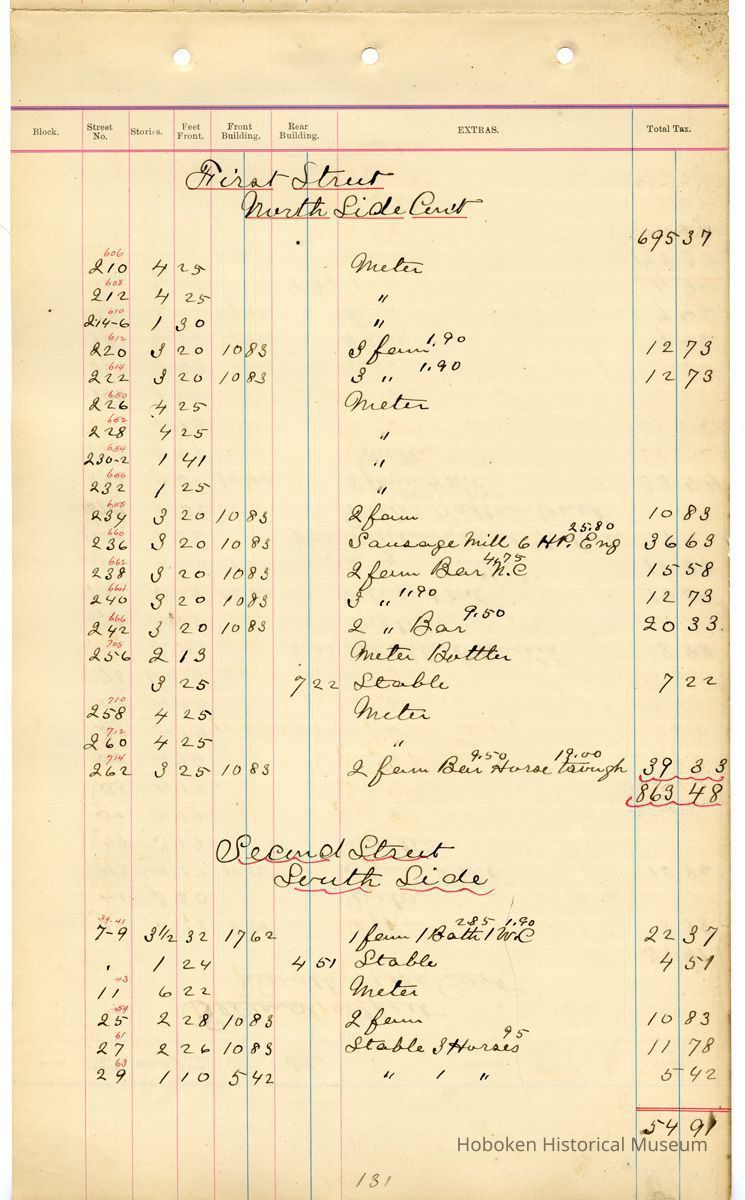 Block. Street No. Stories. Feet Front. Front Building. Rear Building. EXTRAS. Total Tax.
First Street
North Side Con't
695 37
606
210 4 25 Meter
608
212 4 25 "
610
214-6 1 30 "
612
220 3 20 10 83 3 fam 1.90 12 73
614
222 3 20 10 83 3 " 1.90 12 73
650
226 4 25 Meter
652
228 4 25 "
654
230-2 1 41 "
656
232 1 25 "
658
234 3 20 10 83 2 fam 10 83
660
236 3 20 10 83 Sausage Mill 6 H.P. Eng 25.80 36 63
662
238 3 20 10 83 2 fam Bar N.C 4.75 15 58
664
240 3 20 10 83 3 " 1.90 12 73
666
242 3 20 10 83 2 " Bar 9.50 20 33
708
256 2 13 Meter Bottler
3 25 7 22 Stable 7 22
710
258 4 25 Meter
712
260 4 25 "
714
262 3 25 10 83 2 fam Bar 9.50 Horse Trough 19.00 39 33
863 48
Second Street
South Side
39-41
7-9 3 1/2 32 17 62 1 fam 1 Bath 2.85 1 W.C 1.90 22 37
" 1 24 4 51 Stable 4 51
43
11 6 22 Meter
59
25 2 28 10 83 2 fam 10 83
61
27 2 26 10 83 Stable 3 Horses 95 11 78
63
29 1 10 5 42 " 1 " 5 42
54 91
Hoboken Historical Museum
131